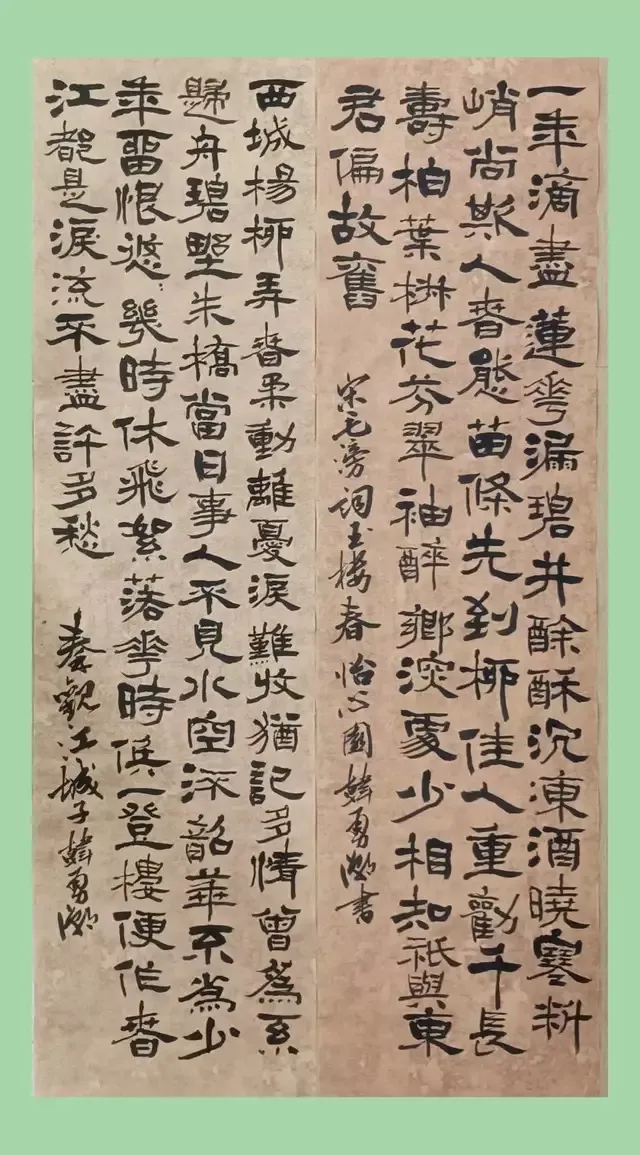 一年滴盡蓮花漏碧井酴酥沉凍酒曉寒料
峭尚欺人春態苗條先到柳佳人重勸千長
壽柏葉椒花芬翠袖醉鄉深處少相知祇與東
君偏故舊
宋毛滂詞玉樓春怡心園韓勇書
西城楊柳弄春柔動離憂淚難收猶記多情曾為系
歸舟碧野朱橋當日事人不見水空流韶華不為少
年留恨悠〻幾時休飛絮落花時候一登樓便作春
江都是淚流不盡許多愁
秦觀江城子韓勇